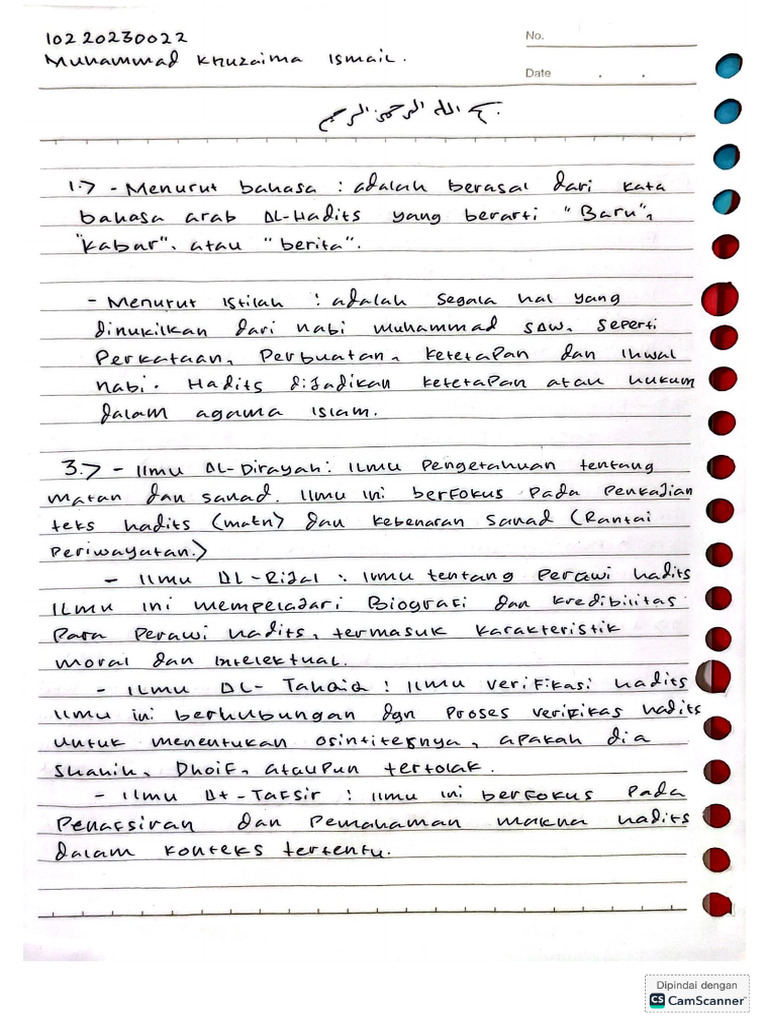 10220230022
Muhammad Khuzaima Ismail.
No.
Date . .
بسم الله الرحمن الرحيم
1.> - Menurut bahasa : adalah berasal dari kata
bahasa arab Al-Hadits yang berarti "Baru",
"kabar", atau "berita".
- Menurut Istilah : adalah segala hal yang
dinukilkan dari nabi muhammad SAW, seperti
Perkataan, Perbuatan, ketetapan dan Ihwal
nabi. Hadits dijadikan ketetapan atau hukum
dalam agama Islam.
3.> - Ilmu Al-Dirayah : Ilmu Pengetahuan tentang
matan dan sanad. Ilmu ini berfokus pada Pengkajian
teks hadits (matn) dan kebenaran sanad (Rantai
Periwayatan.)
- Ilmu Al-Rijal : Ilmu tentang Perawi hadits
Ilmu ini mempelajari Biografi dan kredibilitas
Para Perawi hadits, termasuk karakteristik
moral dan intelektual.
- Ilmu Al- : Ilmu verifikasi hadits
Ilmu ini berhubungan dgn Proses verifikas hadits
untuk menentukan , apakah dia
shahih, Dhoif, ataupun tertolak.
- Ilmu At-Tafsir : Ilmu ini berfokus Pada
Penafsiran dan Pemahaman makna hadits
dalam konteks tertentu.
Dipindai dengan
CS CamScanner